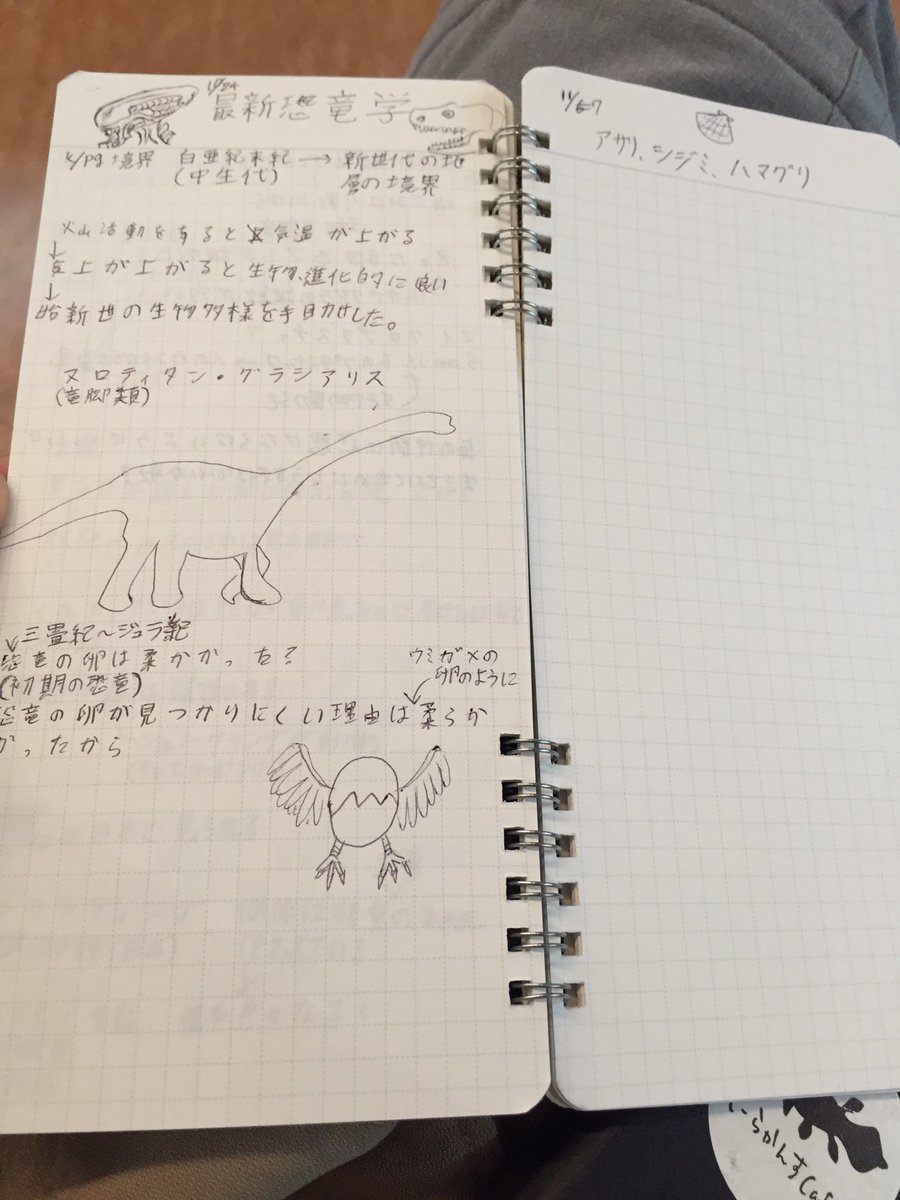 10/24
最新恐竜学
K/Pg境界 白亜紀末紀→新世代の地
(中生代) 層の境界
火山活動をすると気温が上がる
↓
気上が上がると生物進化的に良い
↓
暁新世の生物多様を手助けした。
ヌロティタン・グラシアリス
(竜脚類)
三畳紀〜ジュラ紀
恐竜の卵は柔かかった?
(初期の恐竜)
ウミガメの
卵のように
恐竜の卵が見つかりにくい理由は柔らか
かったから
アサリ、シジミ、ハマグリ
いらかんすCaf